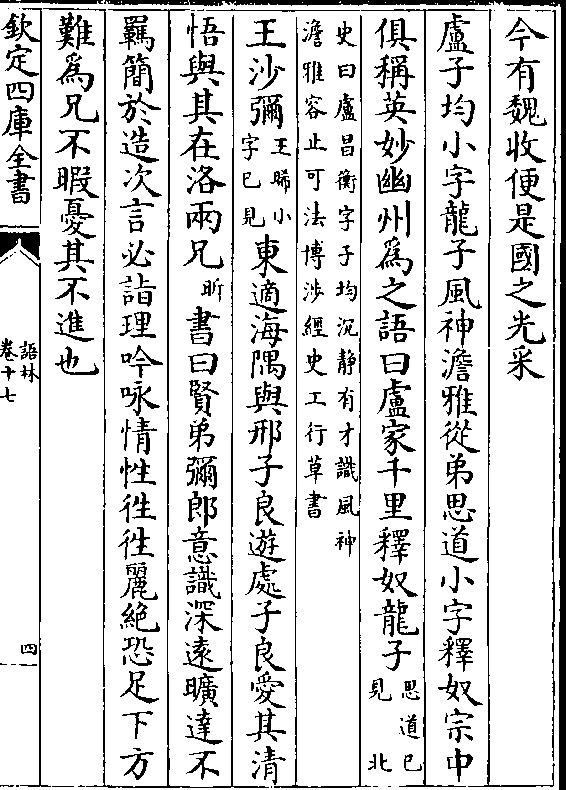 今有魏收便是國之光采
盧子均小字龍子風神澹雅從弟思道小字釋奴宗中
俱稱英妙幽州爲之語曰盧家千里釋奴龍子思道已見北
史曰盧昌衡字子均沉静有才識風神
澹雅容止可法博涉經史工行草書
王沙彌王晞小字已見東適海隅與邢子良遊處子良愛其清
悟與其在洛兩兄昕書曰賢弟彌郎意識深遠曠達不
羈簡於造次言必詣理吟咏情性徃徃麗絕恐足下方
難爲兄不暇憂其不進也
欽定四庫全書
語林
卷十七
四